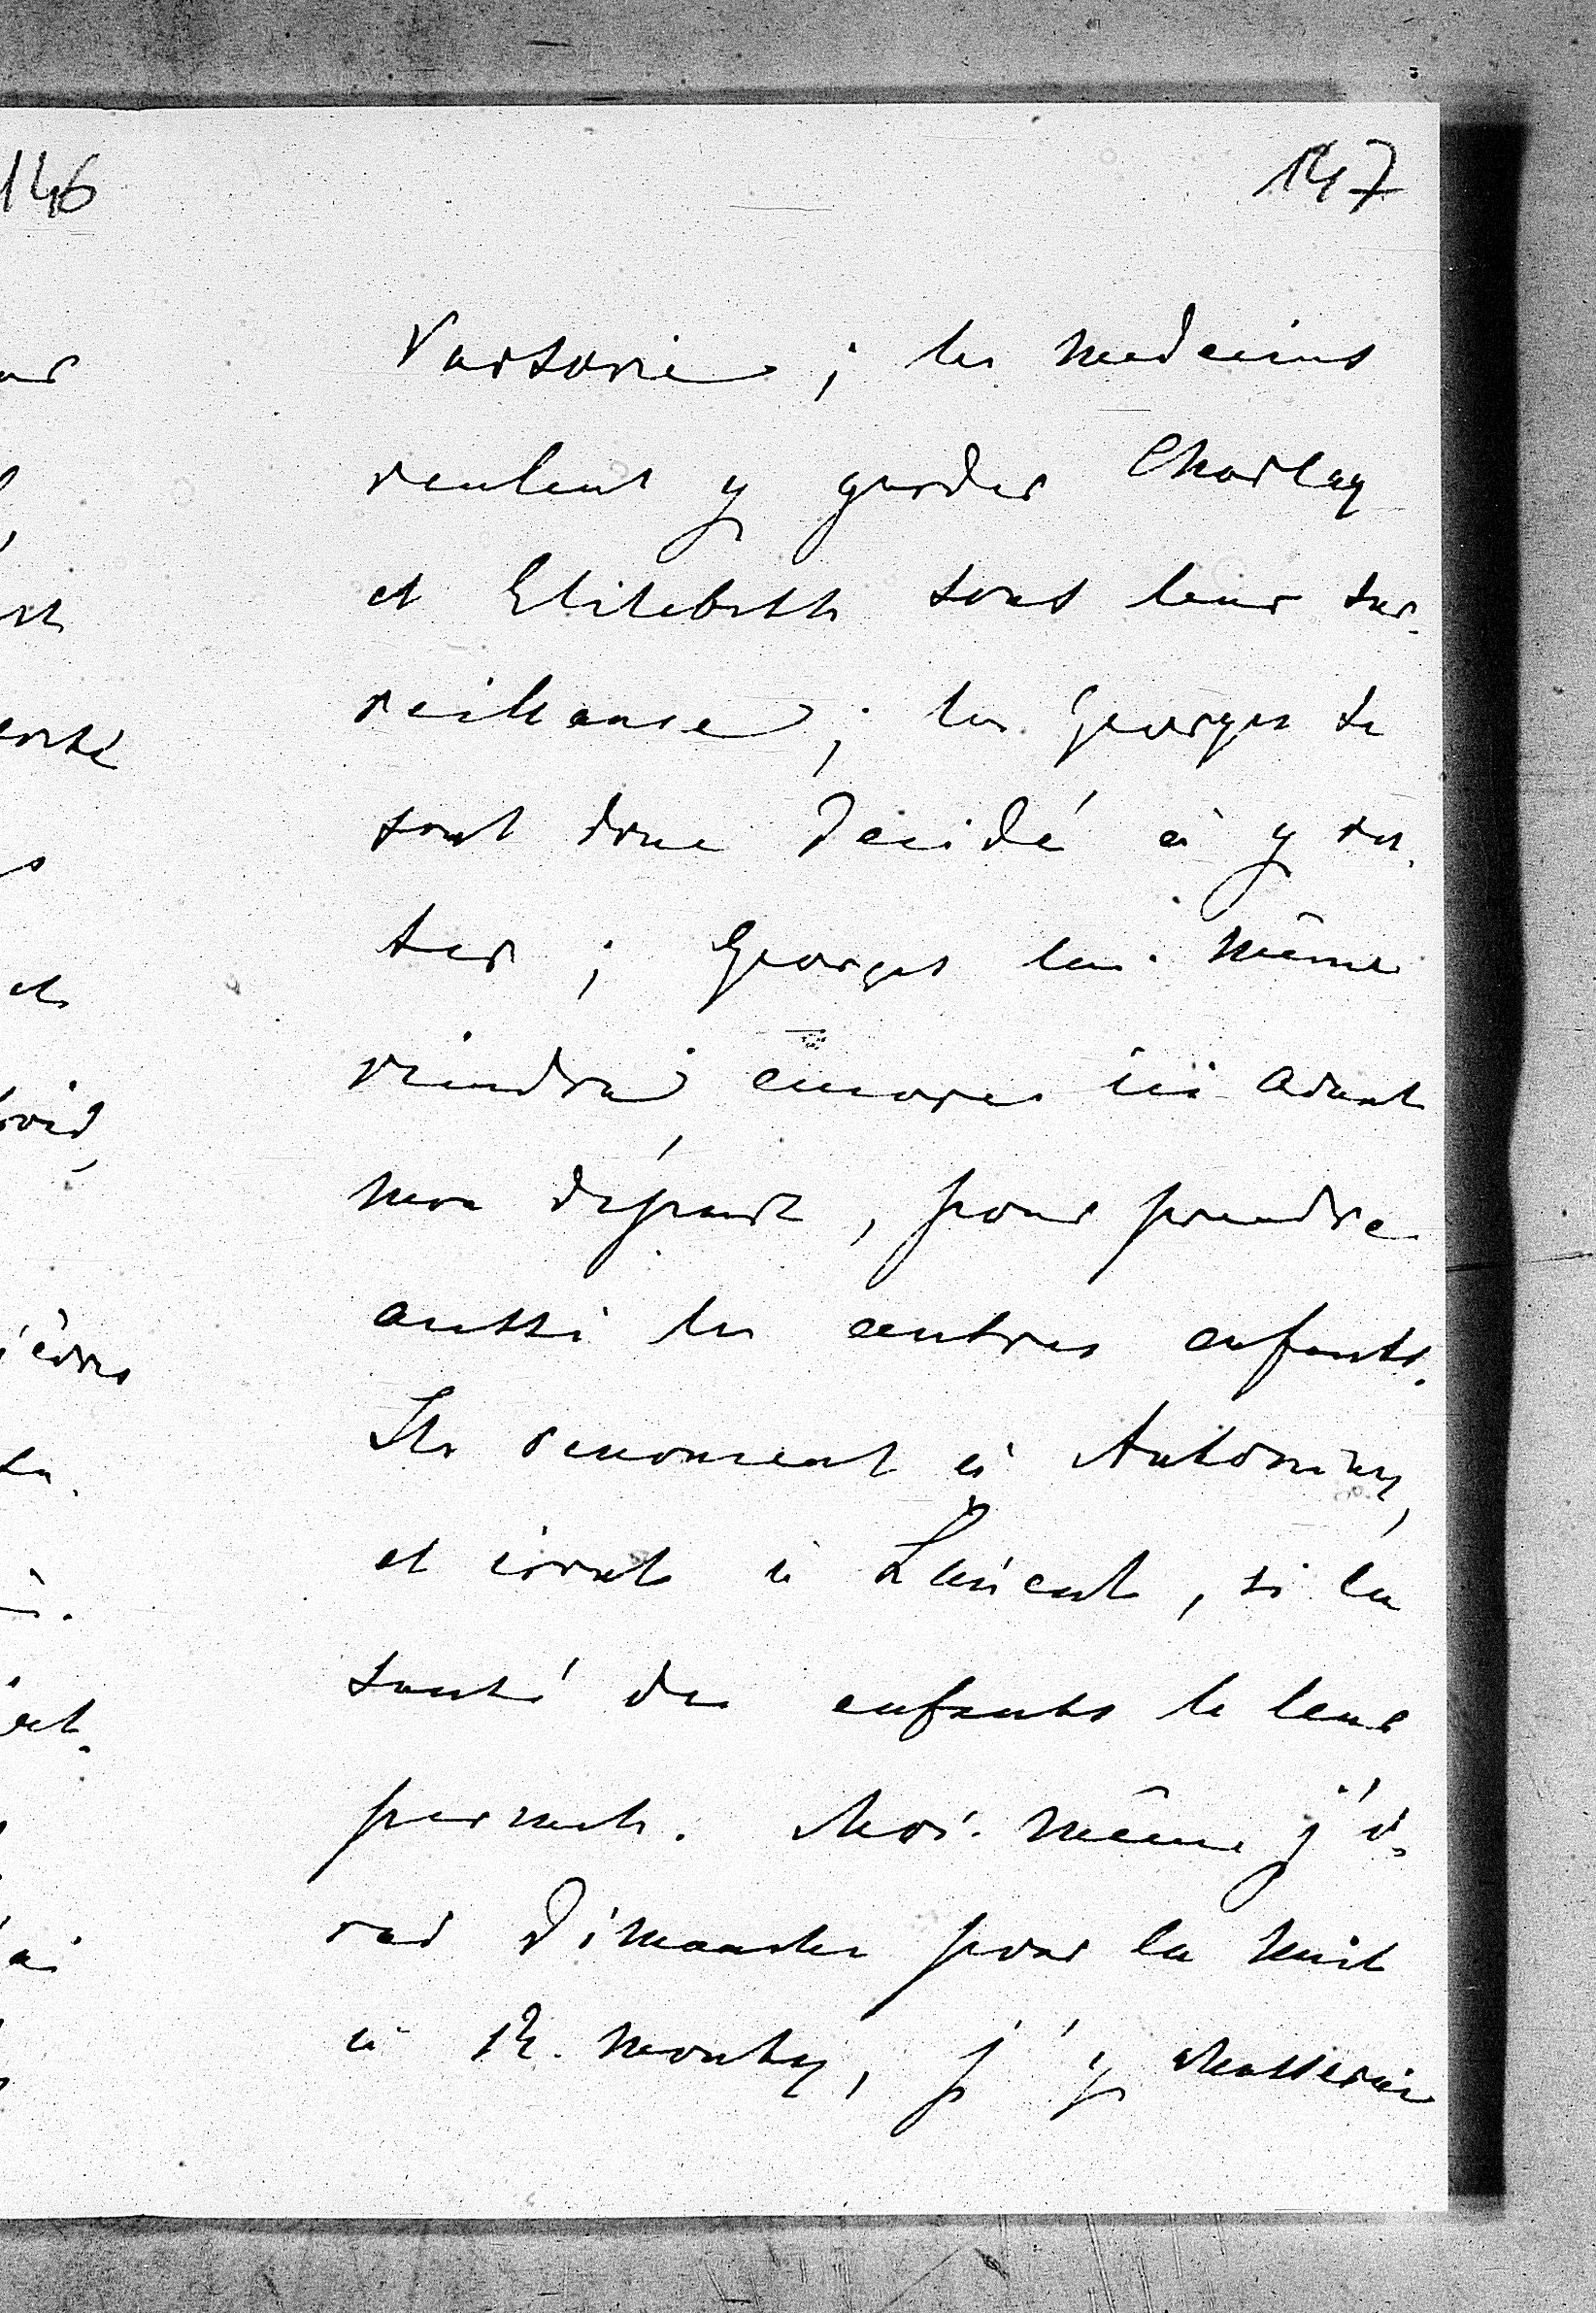 146
147
Varsovie ; les medecins
veulent y garder Charley
et Elisabeth sous leur sur-
veillance ; les Georges se
sont donc decidé à y res-
ter ; Georges lui-même
viendra encore ici avant
mon départ, pour prendre
aussi les autres enfants.
Ils renoncent à Antoniny,
et iront à Łańcut, si la
santé des enfants le leur
permet. Moi-même j'i-
rai Dimanche pour la nuit
à monty, j'y chasserai